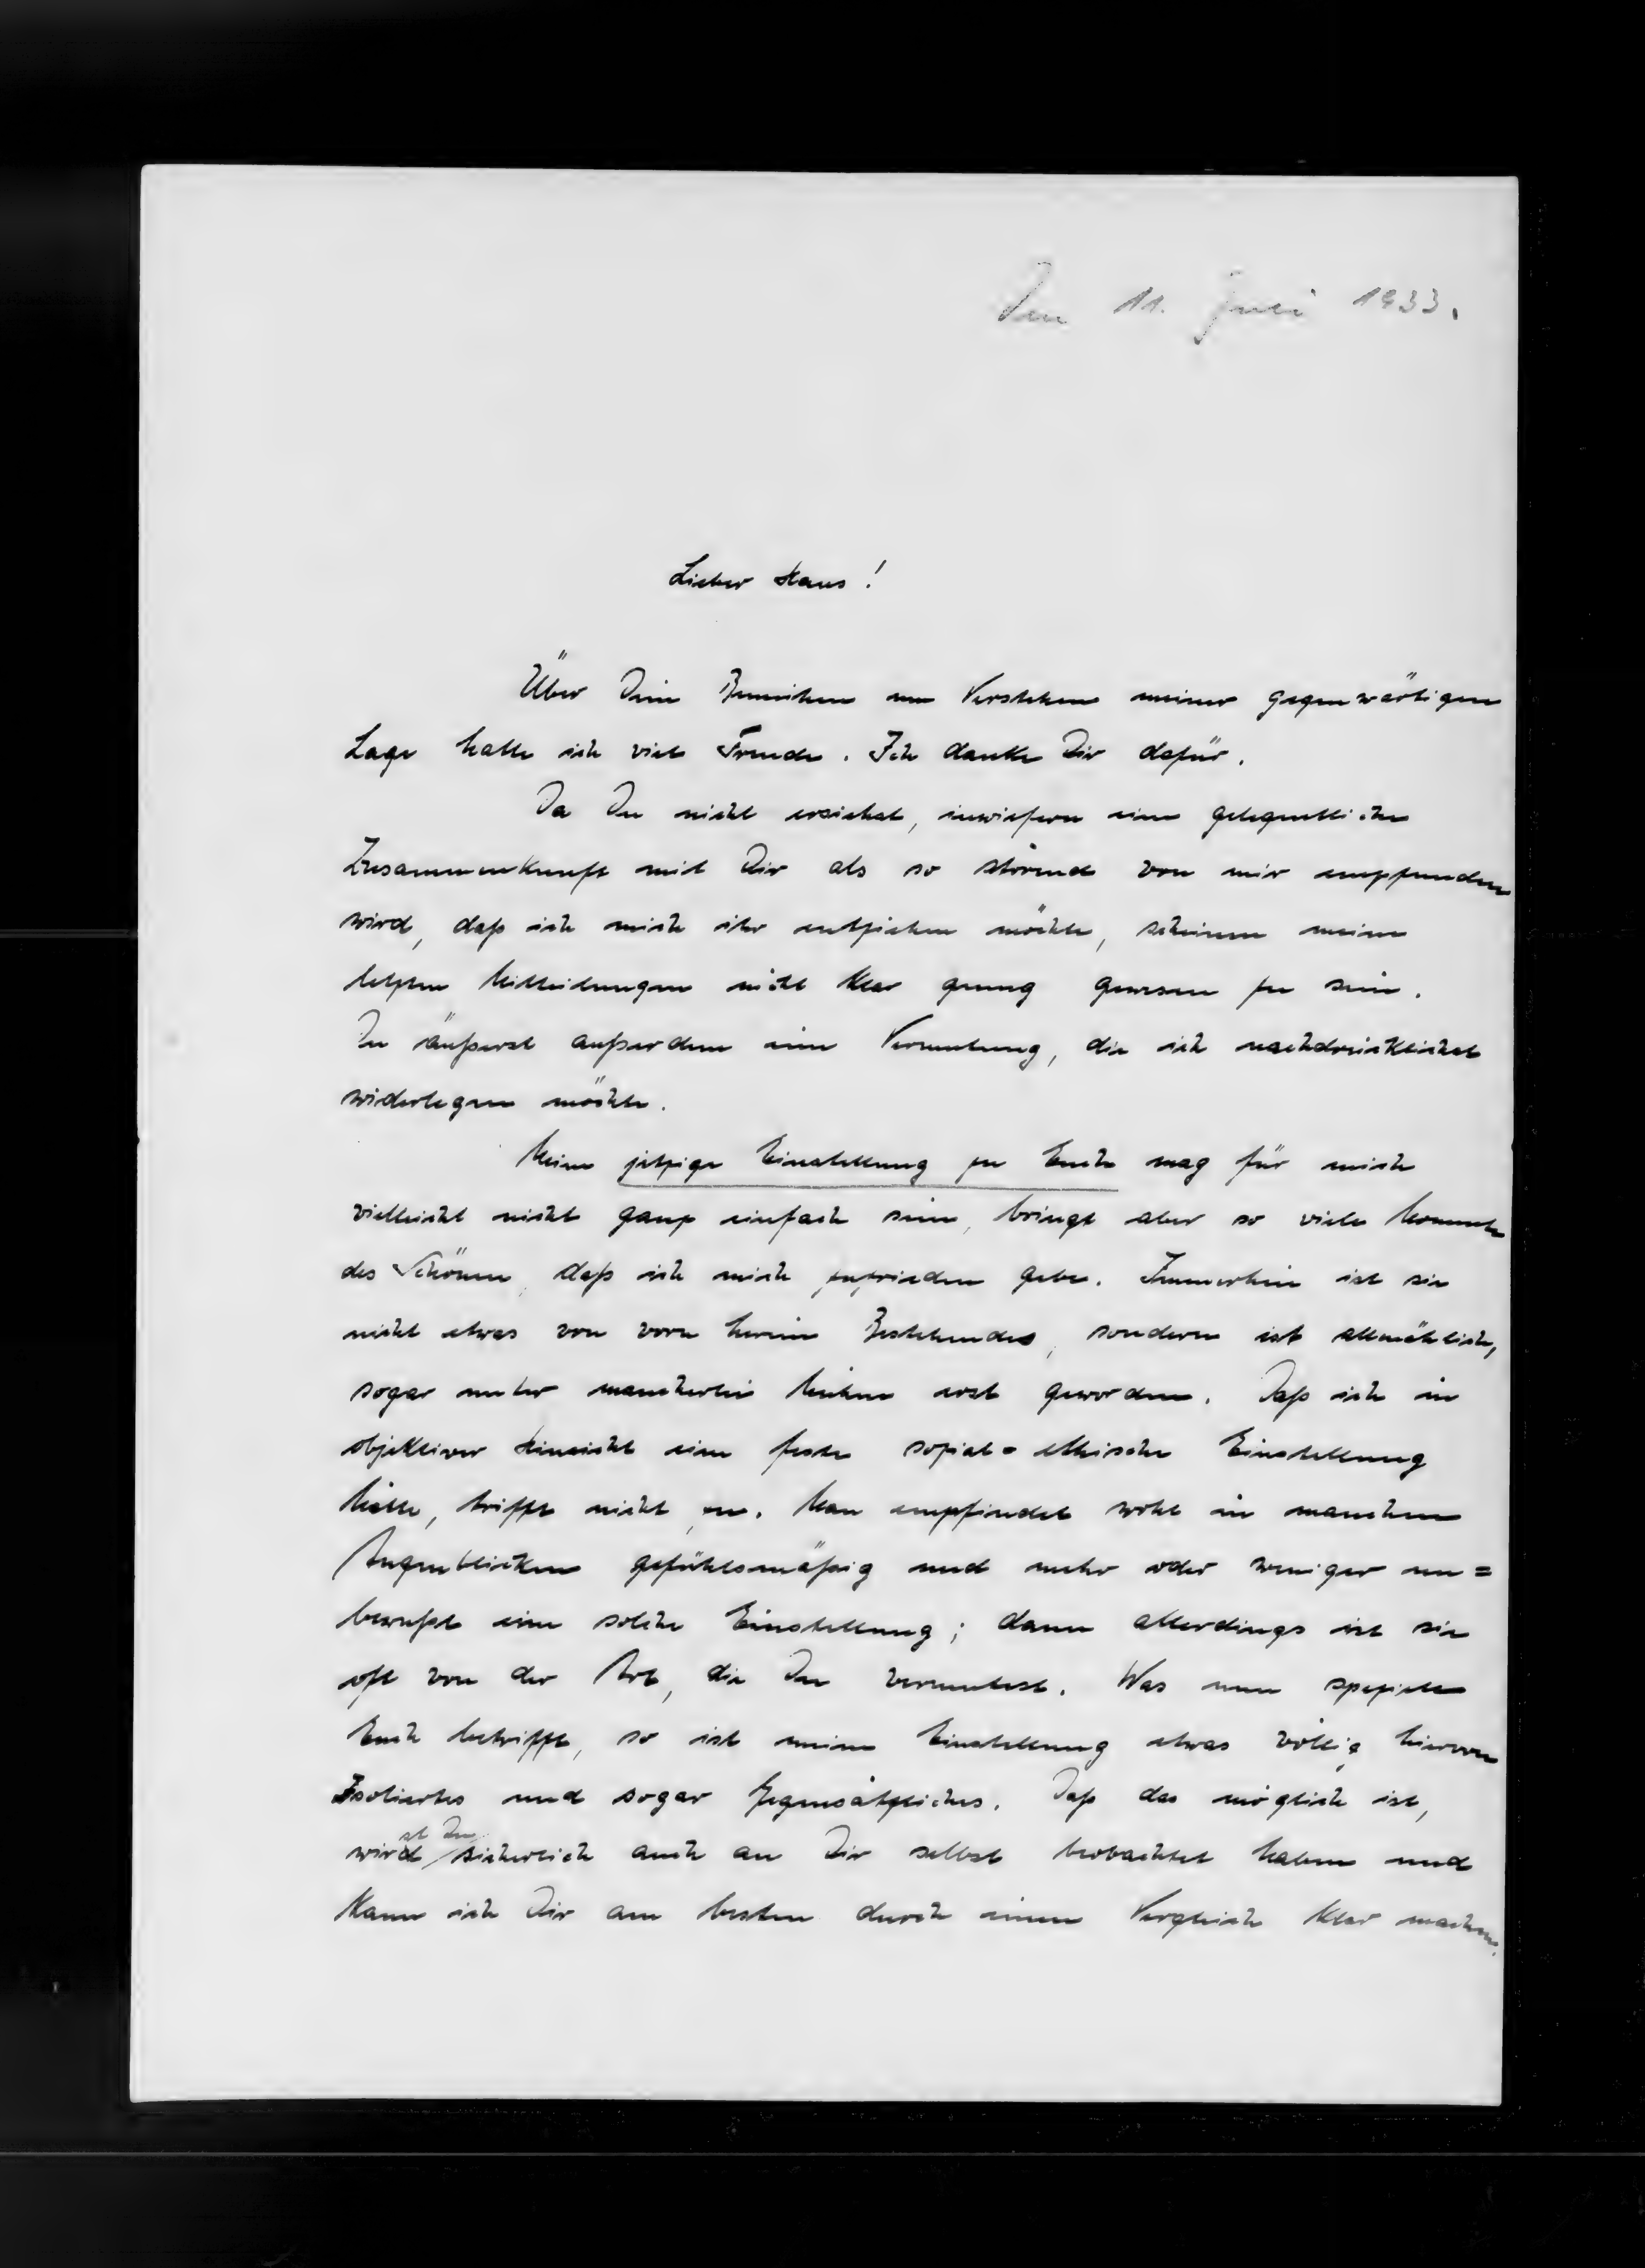 Den 11. Juli 1933.
Lieber Hans!
Über Dein Bemühen um Verstehen meiner gegenwärtigen
Lage hatte ich viel Freude. Ich danke Dir dafür.
Da Du nicht ersiehst, inwiefern eine gelegentliche
Zusammenkunft mit Dir als so störend von mir empfunden
wird, daß ich mich ihr entziehen möchte, scheinen meine
letzten Mitteilungen nicht klar genug gewesen zu sein.
Du äußerst außerdem eine Vermutung, die ich nachdrücklichst
widerlegen möchte.
Meine jetzige Einstellung zu Euch mag für mich
vielleicht nicht ganz einfach sein, bringt aber so viele Momente
des Schönen, daß ich mich zufrieden gebe. Immerhin ist sie
nicht etwas von vorn herein Bestehendes, sondern ist allmählich,
sogar unter mancherlei Mühen erst geworden. Daß ich in
objektiver Hinsicht eine feste sozial=ethische Einstellung
hätte, trifft nicht zu. Man empfindet wohl in manchen
Augenblicken gefühlsmäßig und mehr oder weniger un=
bewußt eine solche Einstellung; dann allerdings ist sie
oft von der Art, die Du vermutest. Was nun speziell
Euch betrifft, so ist meine Einstellung etwas völlig hiervon
Isoliertes und sogar Gegensätzliches. Daß das möglich ist,
wirst Du sicherlich auch an Dir selbst beobachtet haben und
kann ich Dir am besten durch einen Vergleich klar machen.